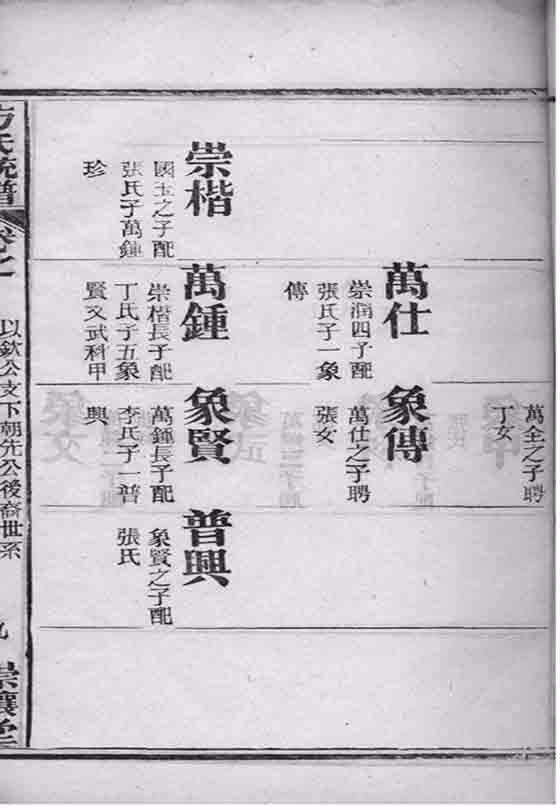 萬全之子聘
丁女
萬仕
崇潤四子配
張氏子一象
傳
象傳
萬仕之子聘
張女
崇楷
國玉之子配
張氏子萬鍾
珍
萬鍾
崇楷長子配
丁氏子五象
賢文武科甲
象賢
萬鍾長子配
李氏子一普
興
普興
象賢之子配
張氏
方氏統譜
以欽公支下朝先公後裔世系
九